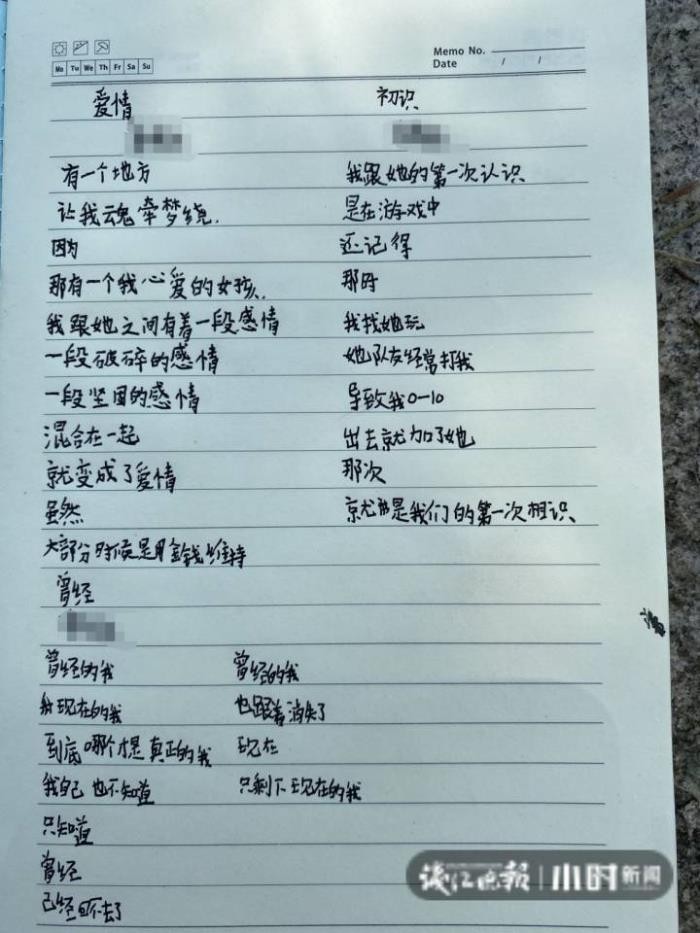 Memo No.
Date / /
Mo Tu We Th Fr Sa Su
爱情
有一个地方
让我魂牵梦绕.
因为
那有一个我心爱的女孩.
我跟她之间有着一段感情
一段破碎的感情
一段坚固的感情
混合在一起
就变成了爱情
虽然
大部分时候是用金钱维持
初识
我跟她的第一次认识
是在游戏中
还记得
那时
我找她玩
她队友经常打我
导致我0-10
出去就加了她
那次
就是我们的第一次相识
曾经
曾经的我
和现在的我
到底哪个才是真正的我
我自己也不知道
只知道
曾经
已经回不去了
曾经的我
也跟着消失了
现在
只剩下现在的我
钱江晚报 小时新闻